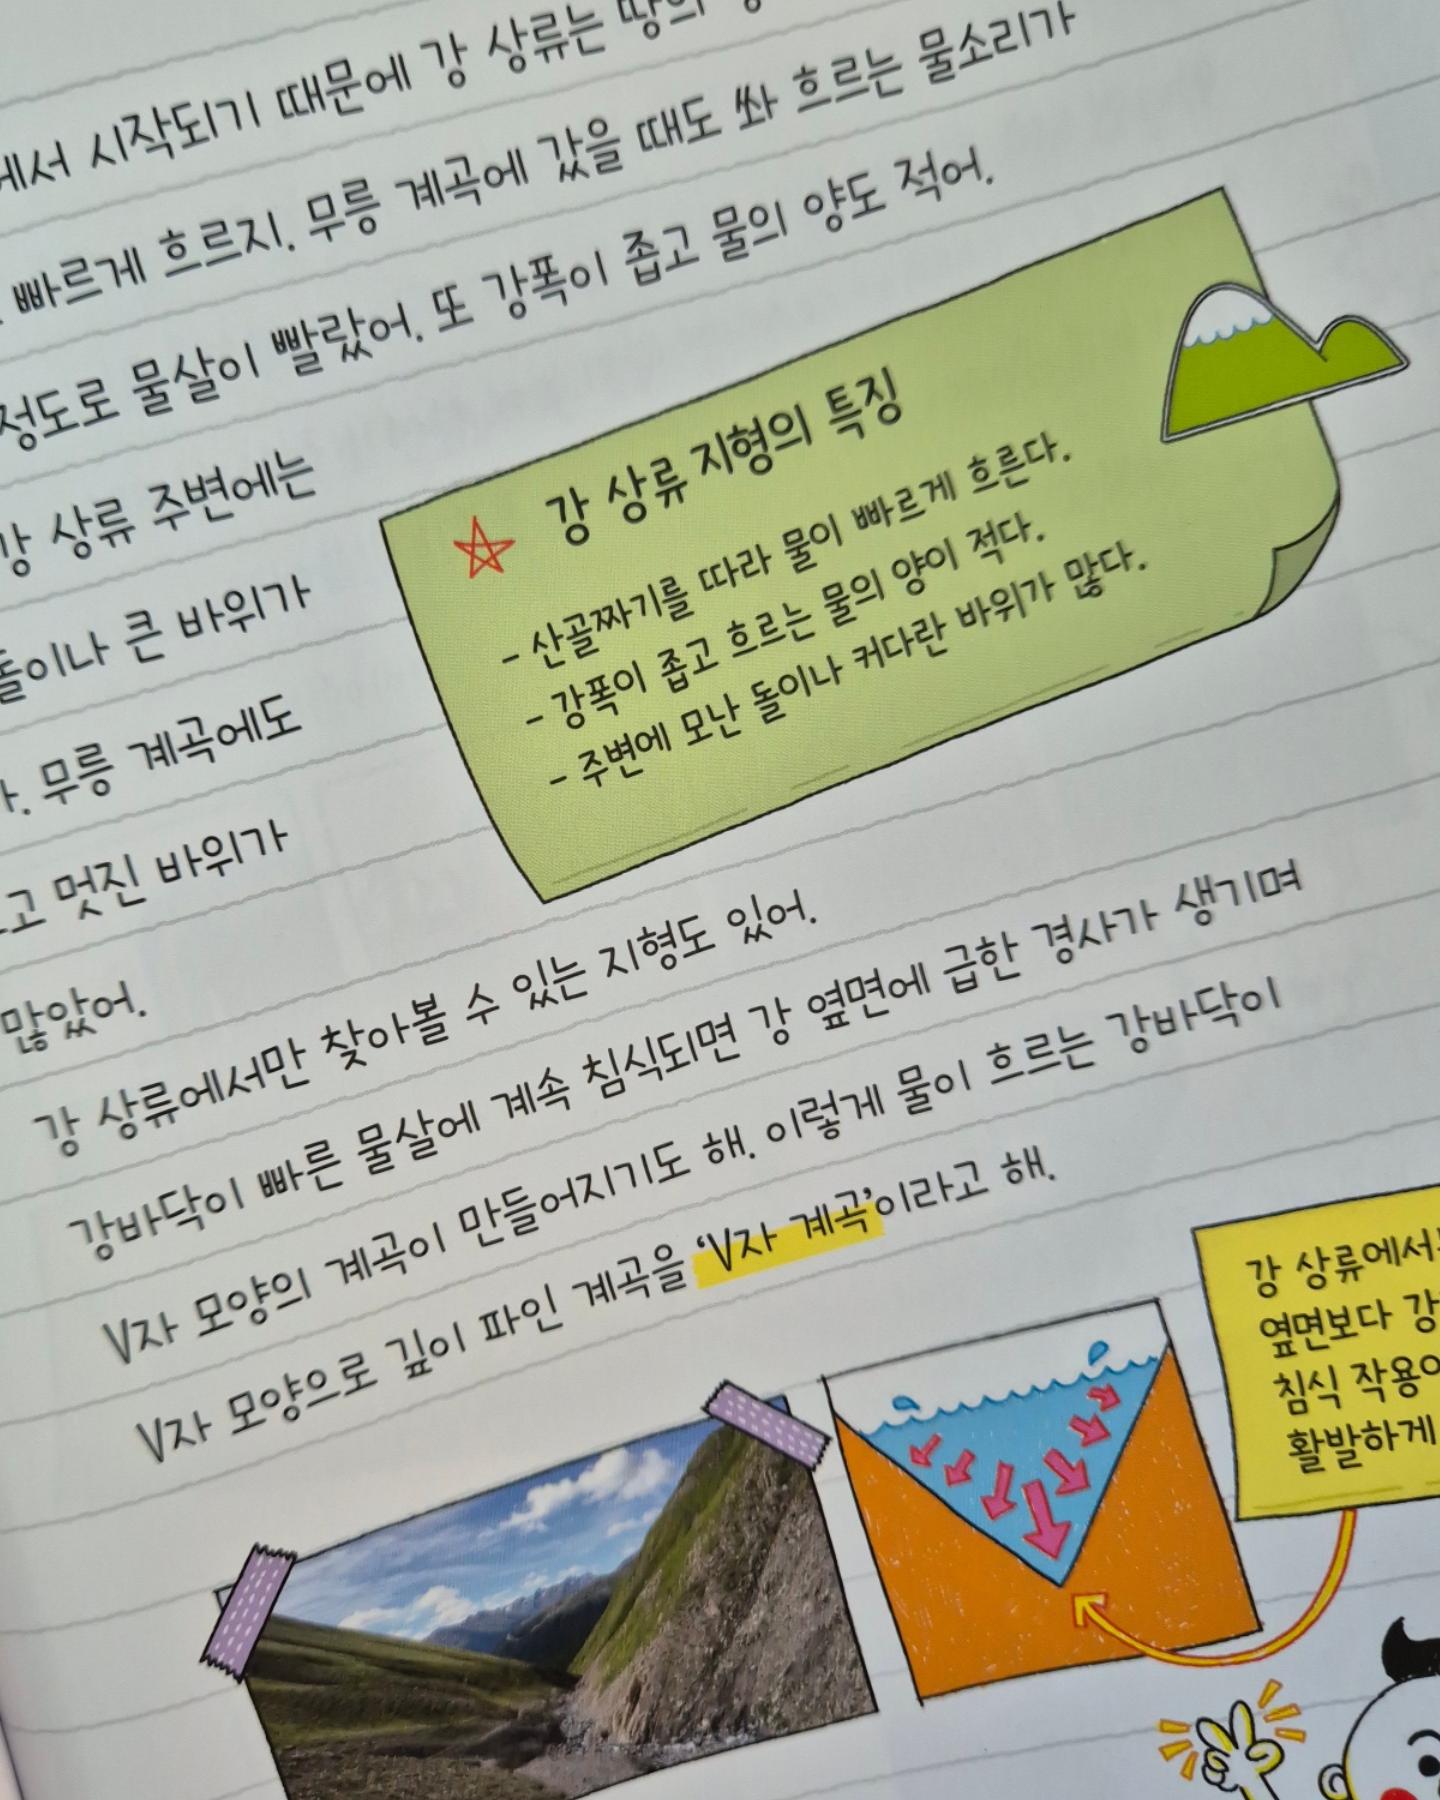 시작되기 때문에 강 상류는
빠르게 흐르지. 무릉 계곡에 갔을 때도 쏴 흐르는 물소리가
정도로 물살이 빨랐어. 또 강폭이 좁고 물의 양도 적어.
강 상류 주변에는
큰 바위가
무릉 계곡에도
멋진 바위가
많았어.
강 상류 지형의 특징
- 산골짜기를 따라 물이 빠르게 흐른다.
- 강폭이 좁고 흐르는 물의 양이 적다.
- 주변에 모난 돌이나 커다란 바위가 많다.
강 상류에서만 찾아볼 수 있는 지형도 있어.
강바닥이 빠른 물살에 계속 침식되면 강 옆면에 급한 경사가 생기며
V자 모양의 계곡이 만들어지기도 해. 이렇게 물이 흐르는 강바닥이
V자 모양으로 깊이 파인 계곡을 ‘V자 계곡’이라고 해.
강 상류에서
옆면보다 강
침식 작용
활발하게